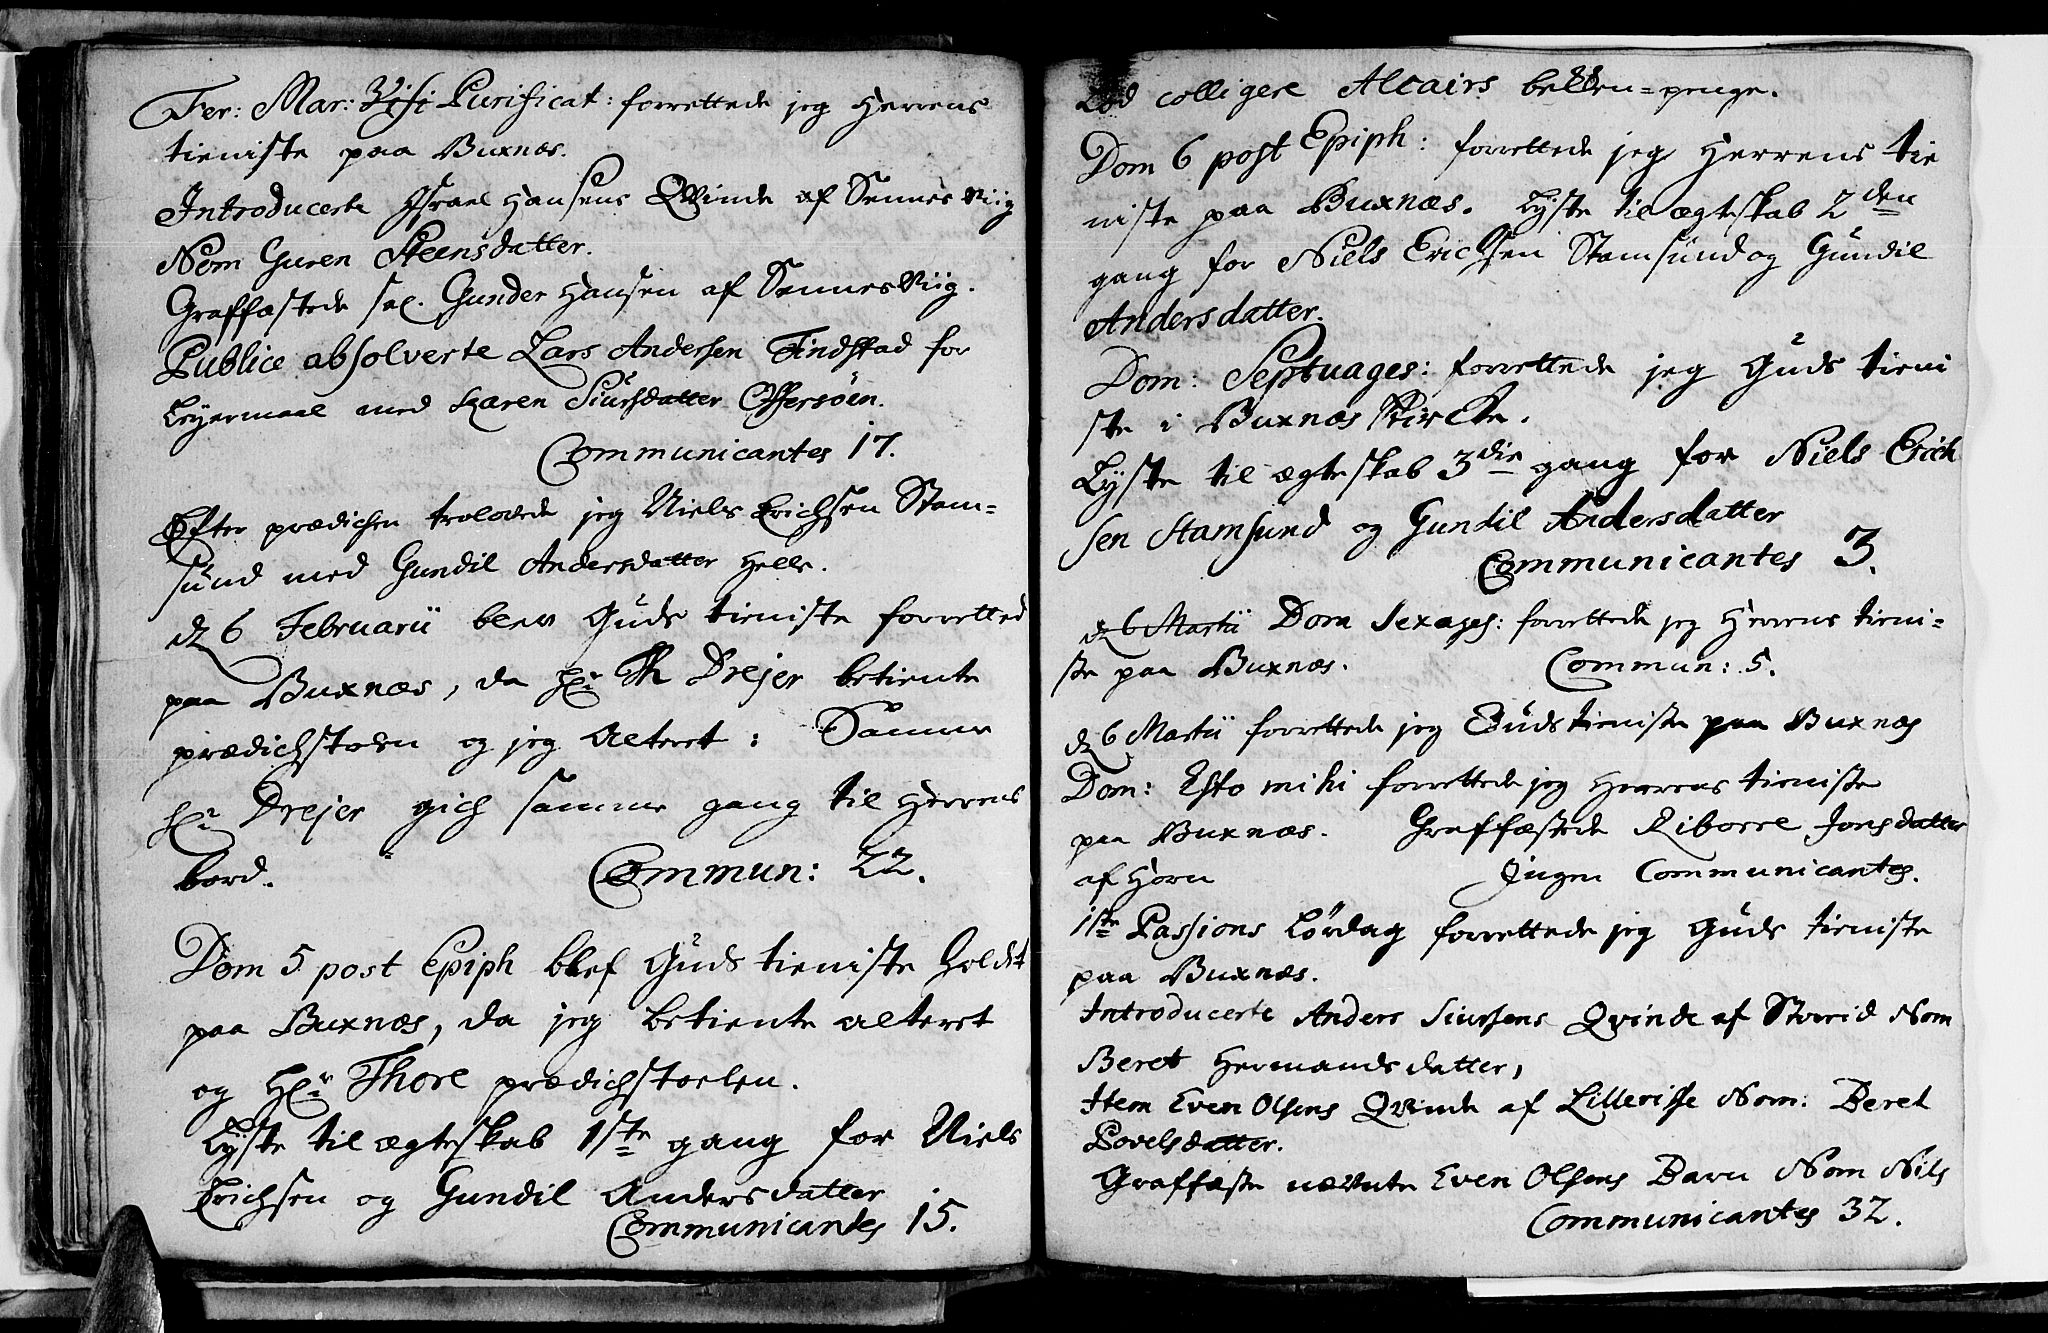 Fer: Mar: Purificat: forrettede jeg Herrens
tieniste paa Buxnæs.
Introducerte Israel Hansens Qvinde af Sennesviig
Nom Guren Steensdatter.
Graffæstede sal. Gunder Hansen af Sennesviig.
Publice absolverte Lars Andersen Findstad for
Leyermaal med Karen Siursdatter Offersøen.
Communicantes 17.
Efter prædichen trolovede jeg Niels Erichsen Stam=
sund med Gundil Andersdatter Helle.
d 6 Februarii blev Guds tieniste forretted
paa Buxnæs, da Hr Th Drejer betiente
prædichstolen og jeg Alteret: Samme
Hr Drejer gich samme gang til Herrens
bord. Commun: 22.
Dom 5 post Epiph blef Guds tieniste holdt
paa Buxnæs, da jeg betiente alteret
og Hr Thore prædichstoelen.
Lyste til ægteskab 1ste gang for Niels
Erichsen og Gundil Andersdatter
Communicantes 15.
Lod colligere Alcairs bekken=penge.
Dom 6 post Epiph: forrettede jeg Herrens tie
niste paa Buxnæs. Lyste til ægteskab 2den
gang for Niels Erichsen Stamsund og Gundil
Andersdatter.
Dom: Septuages: forrettede jeg Guds tieni
ste i Buxnæs Kircke.
Lyste til ægteskab 3die gang for Niels Erich
sen Stamsund og Gundil Andersdatter
Communicantes 3.
d 6 Martii Dom Sexages: forrettede jeg Herrens tieni=
ste paa Buxnæs. Commun: 5.
d 6 Martii forrettede jeg Guds tieniste paa Buxnæs
Dom: Esto mihi forrettede jeg Herrens tieniste
paa Buxnæs. Graffæstede Riborre Jonsdatter
af Horn Ingen Communicantes.
1ste Passions Lørdag forrettede jeg Guds tieniste
paa Buxnæs.
Introducerte Anders Siursens Qvinde af Storeid Nom
Beret Hermandsdatter,
Item Even Olsens Qvinde af Lillerisse Nom: Beret
Povelsdatter.
Graffæste nævnte Even Olsens Barn Nom Nils
Communicantes 32.